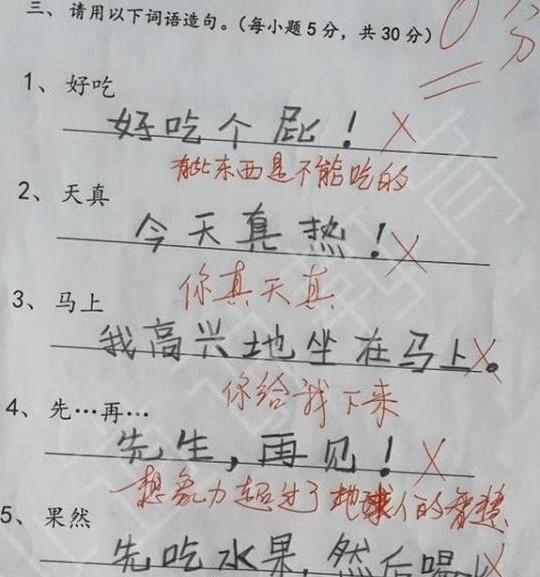 三、请用以下词语造句。(每小题5分，共30分) 0分
1、好吃
好吃个屁！
有些东西是不能吃的
2、天真
今天真热！
你真天真
3、马上
我高兴地坐在马上。
你给我下来
4、先…再…
先生，再见！
想象力超过了地球人的智慧
5、果然
先吃水果,然后喝